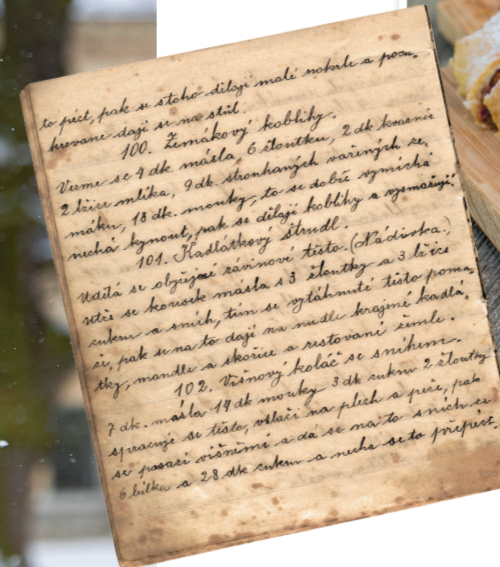 to péct, pak se stoho dělají malé nokrle a pocu-
krované dají se na stůl.
100. Žemákový koblihy.
Vezme se 4 dk. másla, 6 žloutku, 2 dk kvasnic
2 lžíce mlíka, 9 dk. strouhaných vařených ze-
máku, 18 dk. mouky, to se dobře vymíchá
nechá kynout, pak se dělají koblihy a vysmažují.
101. Kadlátkový štrudl.
Udělá se obyčejné závinové tisto. (Nádivka.)
utře se kousek másla s 3 žloutky a 3 lžíce
cukru a sníh, tím se vytáhnuté tisto poma-
že, pak se na to dají na nudle krájené kadlá-
tky, mandle a skořice a restovaní žemle.
102. Višnový koláč se sníhem.
7 dk. másla 14 dk mouky 3 dk cukru 2 žloutky
spracuje se tisto, vtlačí na plech a peče, pak
se posází višněmi a dá se na to sníh ze
6 bílku a 28 dk cukru a nechá se to přepéct.